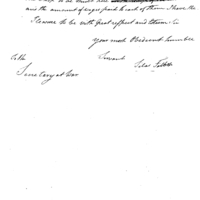 and the amount of wages paid to each of them I have the
Pleasure to be with great respect and esteem Sir
your most Obedient humble
Servant
Silas Talbot
To the
Secretary at War